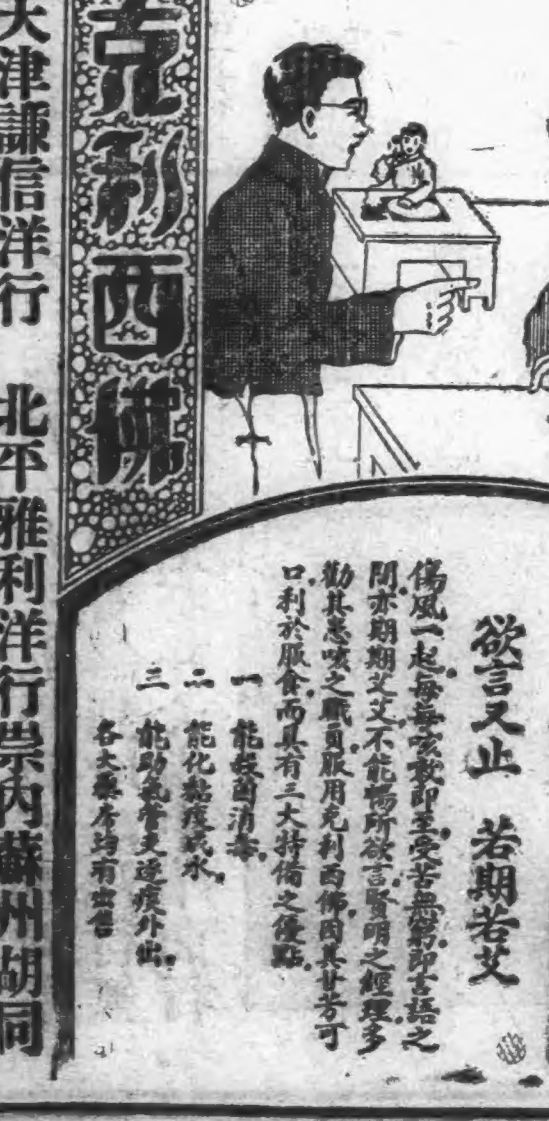 欲言又止　若期若艾
傷風一起，每每咳嗽即至，受苦無窮，即言語之
間，亦期期艾艾，不能暢所欲言，賢明之經理，多
勸其患咳之職員，服用克利西佛，因其甘芳可
口，利於服食，而具有三大特備之優點，
一　能殺菌消毒，
二　能化黏痰成水，
三　能助氣管支逐痰外出，
各大藥房均有出售
克利西佛
天津謙信洋行　北平雅利洋行崇內蘇州胡同